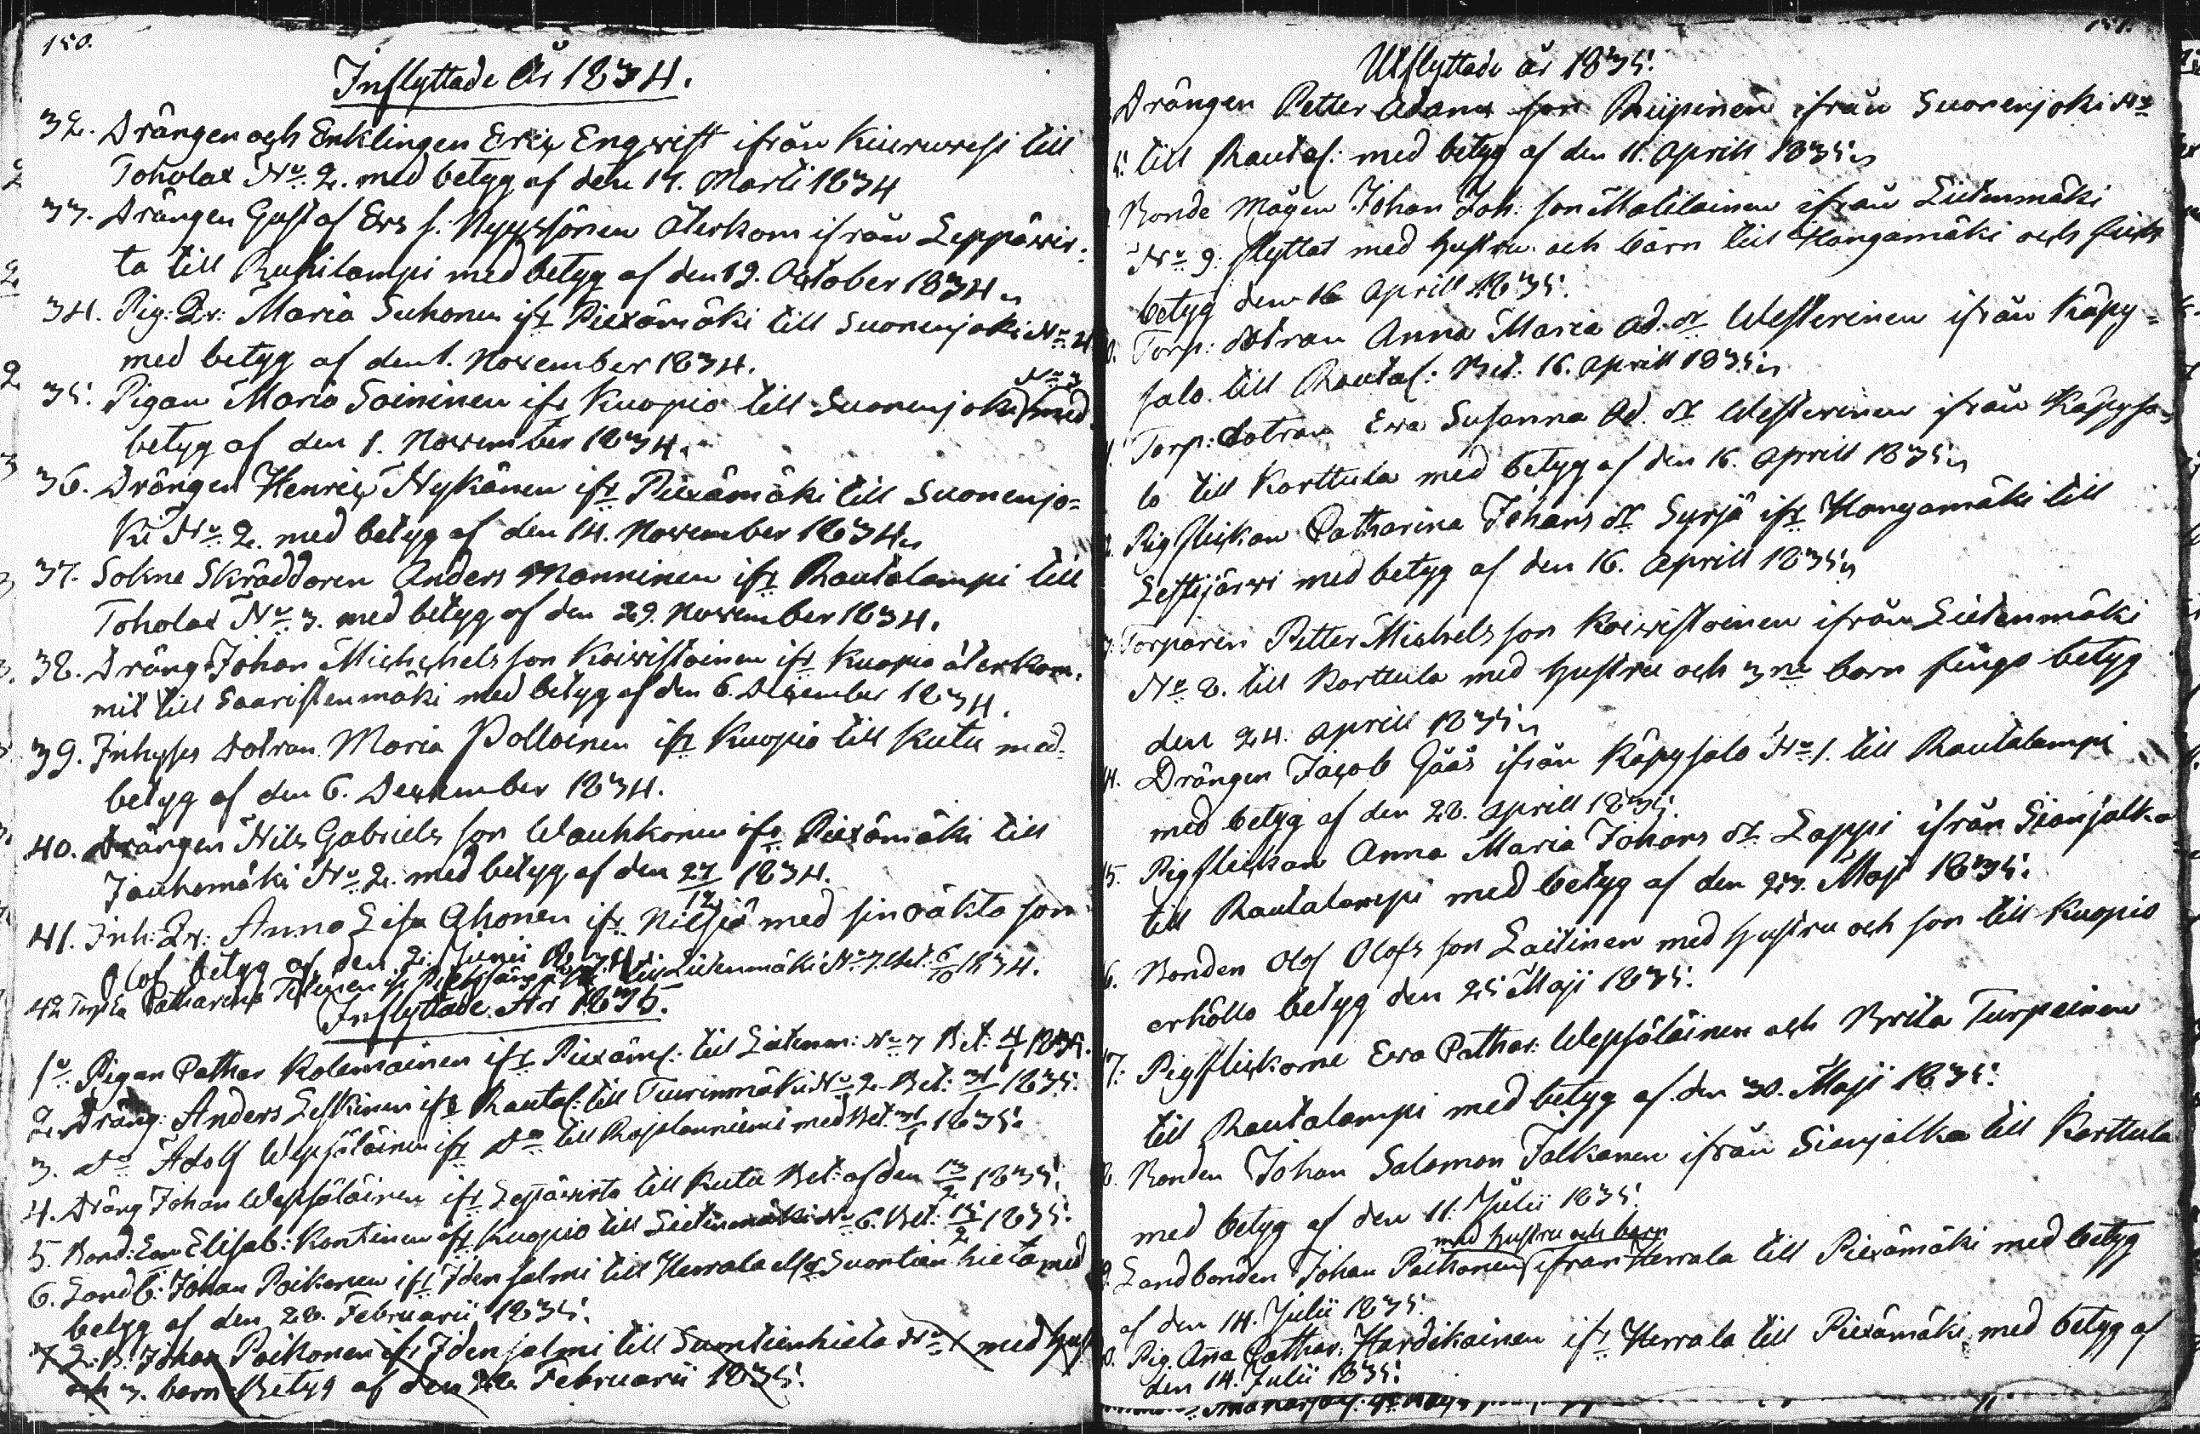 150.
Inflyttade År 1834.
32. Drängen och Enklingen Eric Engvist ifrån Kiuruvesi till
Toholax No. 2. med betyg af den 14. Martii 1834
33. Drängen Gustaf Ers s. Nyyssönen Återkom ifrån Leppävir-
ta till Ruhilampi med betyg af den 19. October 1834
34. Pig: Maria Suhonen ifr Piexämäki till Suonenjoki No 4
med betyg af den 1. November 1834.
35. Pigan Maria Soininen ifr Kuopio till Suonenjoki No 3 med
betyg af den 1. November 1834.
36. Drängen Henric Nykänen ifr Piexämäki till Suonenjo-
ki No. 2. med betyg af den 14. November 1834
37. Sokne Skräddaren Anders Manninen ifr Rautalampi till
Toholax No. 3. med betyg af den 29. November 1834.
38. Dräng Johan Michchels son Koivistoinen ifr Kuopio återkom-
mit till Saaristenmäki med betyg af den 6. December 1834.
39. Inhyses Dotran Maria Pollainen ifr Kuopio till Kutu med
betyg af den 6. December 1834.
40. Drängen Nils Gabriels son Wauhkonen ifr Piexämäki till
Jauhomäki No. 2. med betyg af den 27/12 1834.
41. Inh: Anna Lisa Ahonen ifr Nilsiä med sin oäkta son
Olof betyg af den 2. Junii
42 Catharina till Lietenmäki No 7. Bet. 6/10 1834.
Inflyttade År 1835.
1o. Pigan Cathar Kolemainen ifr Piexäm: till Lietenm: No 7 Bet: 4/1 1835.
2. Dräng: Anders Leskinen ifr Rautal: till Tuurinmäki No 2. Bet: 31/1 1835.
3. Do Adolf Wepsäläinen ifr Do till Rajalanniemi med Bet. 31/1 1835.
4. Dräng Johan Wepsäläinen ifr Leppävirta till Kutu Bet: af den 13/2 1835.
5. Bond: Elisab: Kontinen ifr Kuopio till Lietenmäki No 6. Bet: 15/2 1835.
6. Landb: Johan Poikonen ifr Idensalmi till Herrala eller Suontien hieta med
betyg af den 28. Februarii 1835.
7 L: B: Johan Poikonen ifr Idensalmi till Suontienhieta No med hust
och 3. barn Betyg af den 28. Februarii 1835.
151.
Utflyttade år 1835.
Drängen Petter Adams son Ruipinen ifrån Suonenjoki No
5. till Rautal: med betyg af den 11. Aprill 1835
Bonde Mågen Johan Joh: son Matilainen ifrån Lietenmäki
No 9. flyttat med hustru och barn till Hongamäki och fick
betyg den 16 Aprill 1835.
Torp: dotran Anna Maria Ad. dr Westerinen ifrån Käpy-
salo till Rautal: Bet. 16. Aprill 1835
Torp: dotran Eva Susanna Ad. dr Westerinen ifrån Käpysa-
lo till Karttula med betyg af den 16. Aprill 1835
Pigflickan Catharina Johans dr Syrjä ifr Hongamäki till
Lestijärvi med betyg af den 16. Aprill 1835
Torparen Petter Michels son Koivistoinen ifrån Lietenmäki
No 2. till Karttula med hustru och 3ne barn fingo betyg
den 24. Aprill 1835
Drängen Jacob Gåås ifrån Käpysalo No 1. till Rautalampi
med betyg af den 28. Aprill 1835.
15. Pigflickan Anna Maria Johans dr Lappi ifrån Sianjalka
till Rautalampi med betyg af den 23. Maji 1835.
6. Bonden Olof Olofs son Laitinen med hustru och son till Kuopio
erhöllo betyg den 25 Maji 1835.
17. Pigflickorne Eva Cathar: Wepsäläinen och Brita Turpeinen
till Rautalampi med betyg af den 30. Maji 1835.
Bonden Johan Salomon Jalkanen ifrån Sianjalka till Karttula
med betyg af den 11. Julii 1835.
med hustru och barn
Landbonden Johan Poikonen ifrån Herrala till Piexämäki med betyg
af den 14. Julii 1835.
Pig. Aña Cathar: Hardikainen ifr Herrala till Piexämäki, med betyg af
den 14. Julii 1835.